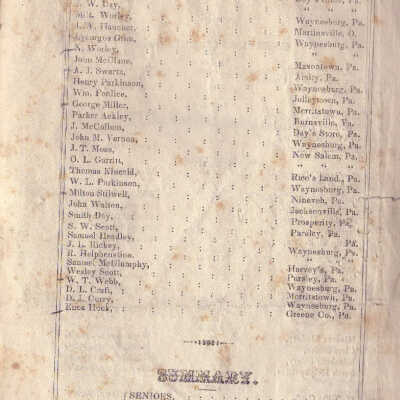 W. Day, Day's Store, Pa.
Worley, " "
Hanmer, Waynesburg, Pa.
Lycurgus Martinsville, O.
N. Worley, Waynesburg, Pa.
John McClane, " "
A. J. Swartz, Masontown, Pa.
Henry Parkinson, Pa.
Wm. Fordice, Waynesburg, Pa.
George Miller, Jolleytown, Pa.
Parker Ackley, Merritstown, Pa.
J. McCollum, Burnsville, Pa.
John M. Vernon, Day's Store, Pa.
J. T. Moss, Waynesburg, Pa.
O. L. Garritt, New Salem, Pa.
Thomas Kincaid, " "
W. L. Parkinson, Rice's Land., Pa.
Milton Stilwell, Waynesburg, Pa.
John Walton, Nineveh, Pa.
Smith Day, Jacksonville, Pa.
S. W. Scott, Prosperity, Pa.
Samuel Headley, Pursley, Pa.
J. L. Hickey, Pa.
R. Helphenstine, Waynesburg, Pa.
Samuel McGlumphy, " "
Wesley Scott, Harvey's, Pa.
W. T. Webb, Pursley, Pa.
D. L. Craft, Waynesburg, Pa.
D. J. Curry, Merritstown, Pa.
Enos Hook, Waynesburg, Pa.
Greene Co., Pa.
SUMMARY.
SENIORS,